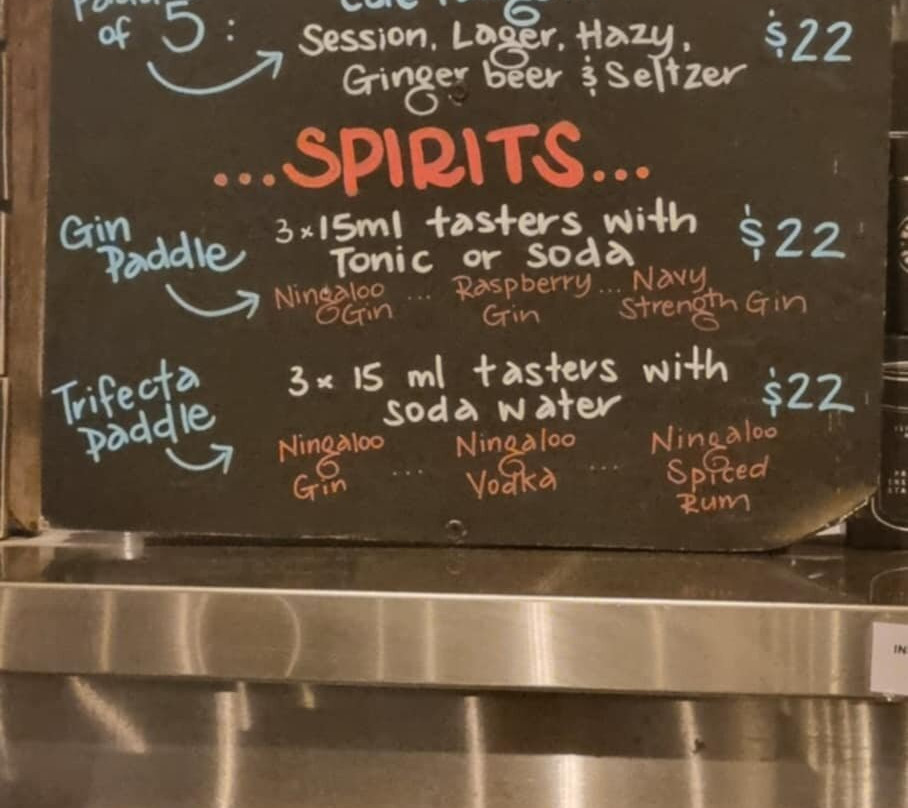 of 5:
Session, Lager, Hazy, $22
Ginger beer & Seltzer
...SPIRITS...
Gin Paddle
3x15ml tasters with $22
Tonic or soda
Ningaloo Gin ... Raspberry Gin ... Navy Strength Gin
Trifecta paddle
3x 15 ml tasters with $22
soda water
Ningaloo Gin .... Ningaloo Vodka ... Ningaloo Spiced Rum
IN